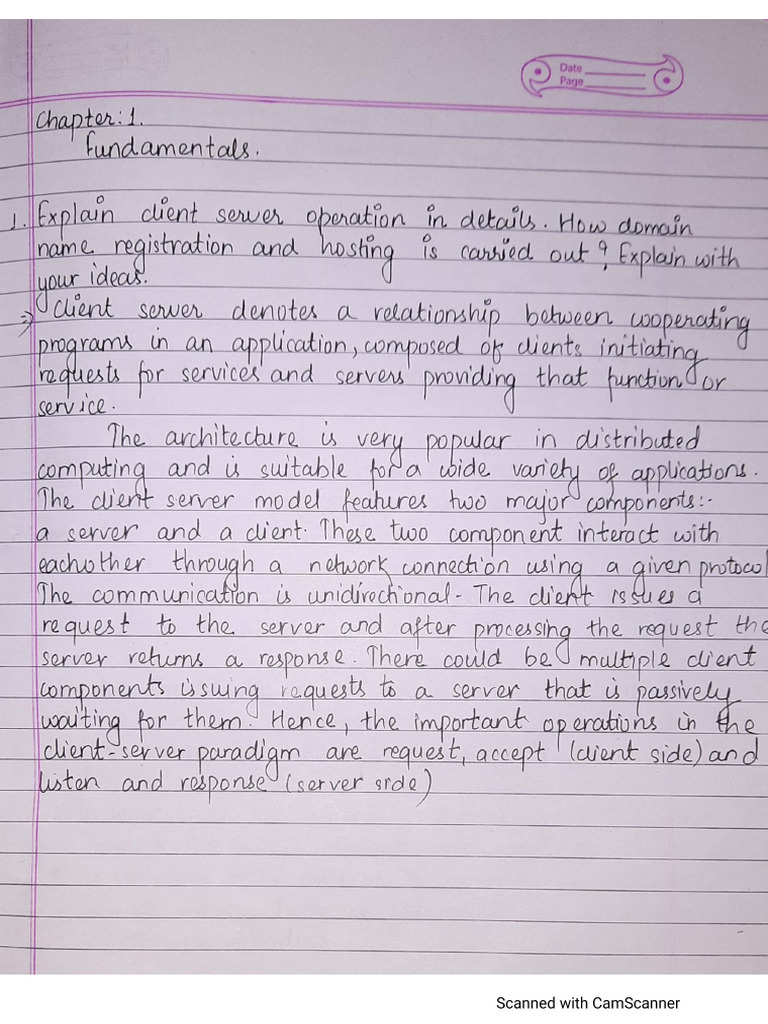 Date
Page
Chapter: 1.
Fundamentals.
1. Explain client server operation in details. How domain
name registration and hosting is carried out? Explain with
your ideas.
⇒ Client server denotes a relationship between cooperating
programs in an application, composed of clients initiating
requests for services and servers providing that function or
service.
The architecture is very popular in distributed
computing and is suitable for a wide variety of applications.
The client server model features two major components:-
a server and a client. These two component interact with
eachother through a network connection using a given protocol
The communication is unidirectional. The client issues a
request to the server and after processing the request the
server returns a response. There could be multiple client
components issuing requests to a server that is passively
waiting for them. Hence, the important operations in the
client-server paradigm are request, accept (client side) and
listen and response (server side)
Scanned with CamScanner